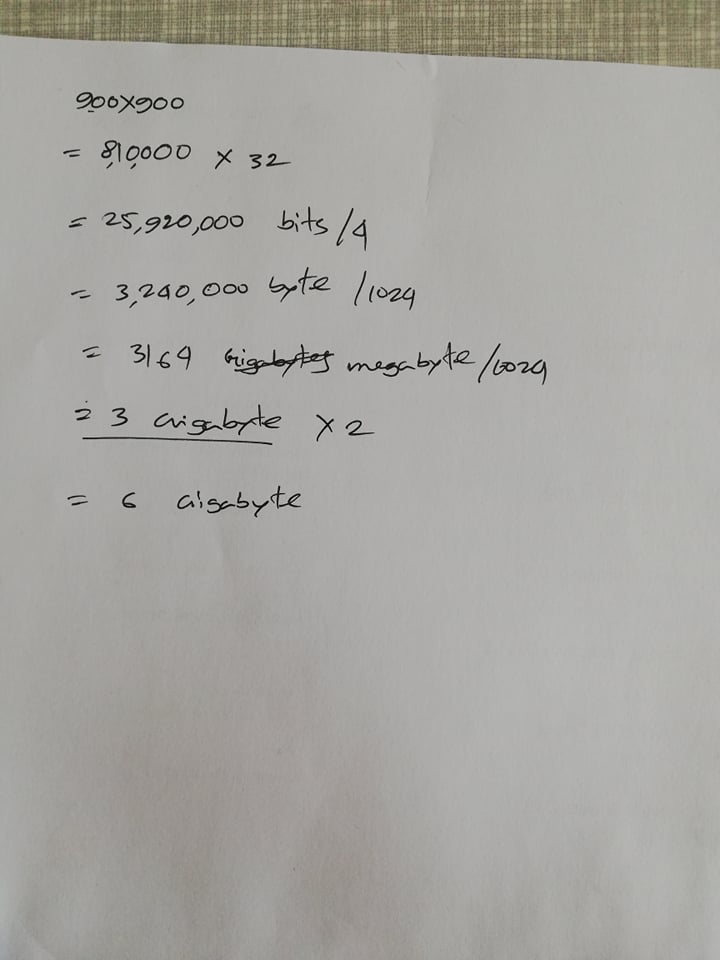 900x900
= 810000 x 32
= 25,920,000 bits/4
= 3,240,000 byte /1024
= 3164 Gigabytes megabyte/1024
= 3 Gigabyte x 2
= 6 Gigabyte